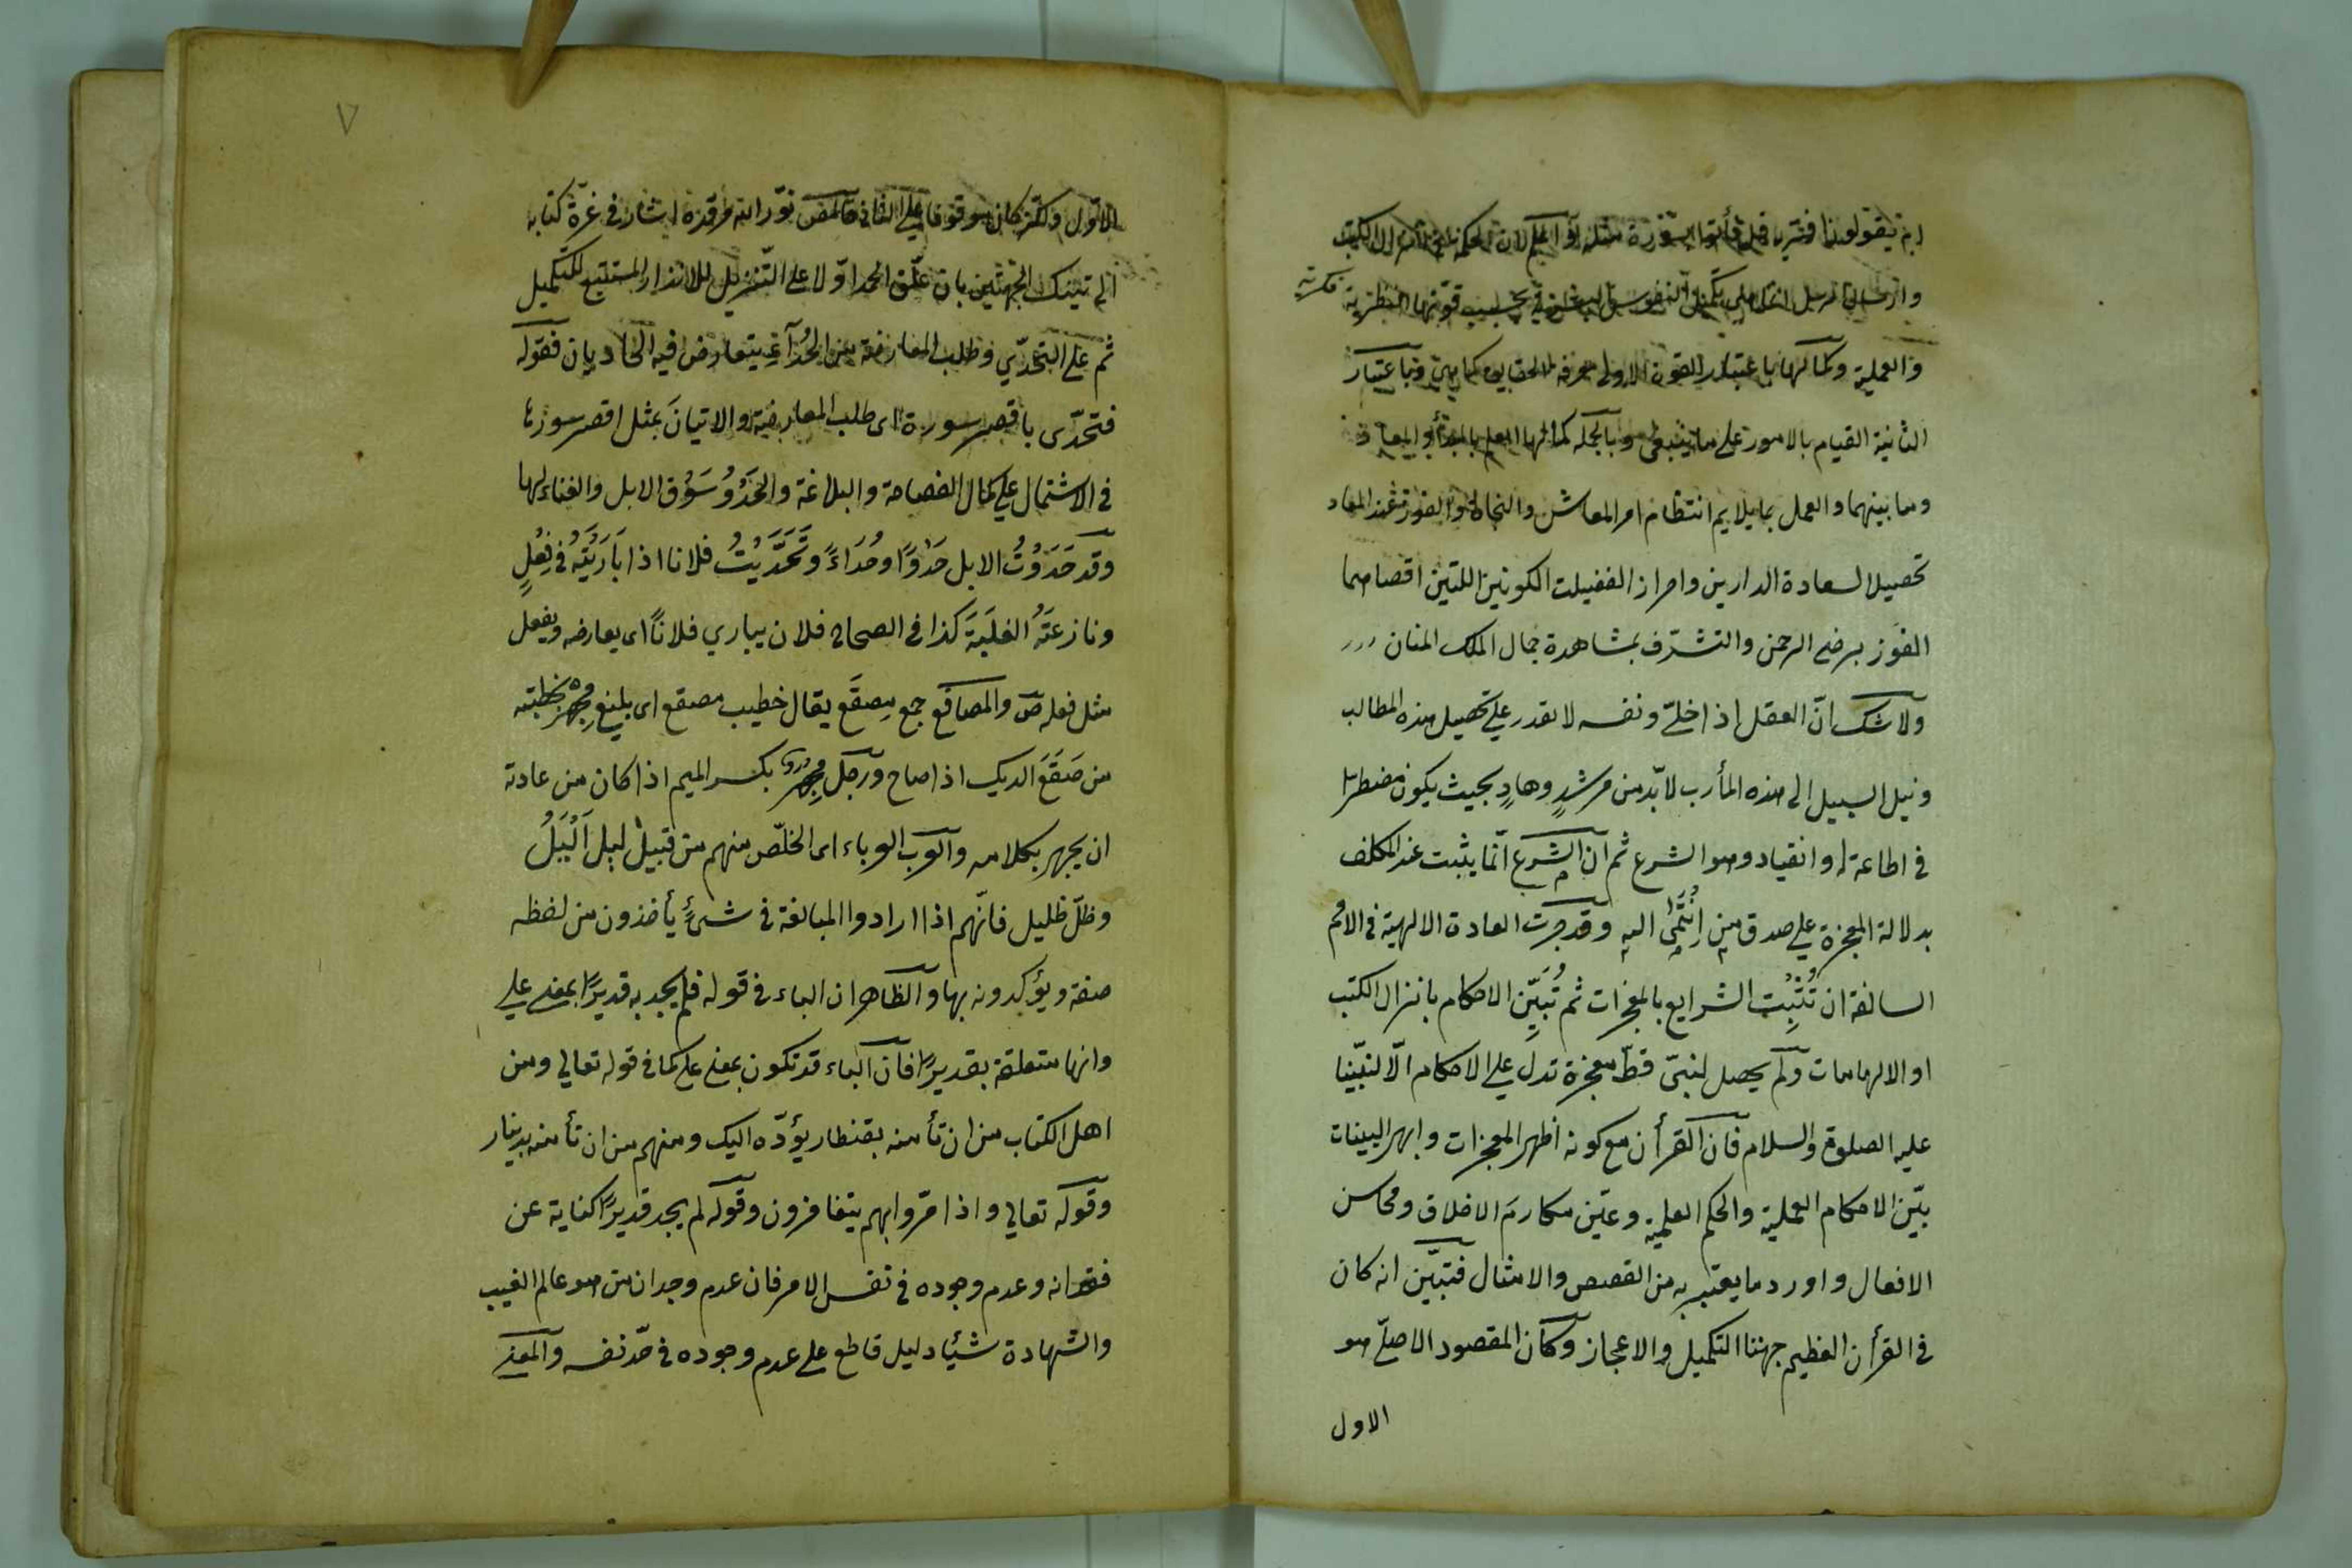 ام يقولون افتريه قل فأتوا بسورة مثله ثم اعلم ان الحكمة في انزال الكتب
وارسال الرسل انما هي تكميل النفوس البشرية بحسب قوتها النظرية
والعملية وكمالها باعتبار القوة الاولى معرفة الحقايق كما هي وباعتبار
الثانية القيام بالامور على ما ينبغي وبالجملة كمالها العلم بالمبدأ والمعاد
وما بينهما والعمل بما يلايم انتظام امر المعاش والنجاة والفوز عند المعاد
تحصيلا لسعادة الدارين واحراز الفضيلت الكونين اللتين اقصاهما
الفوز برضى الرحمن والتشرّف بمشاهدة جمال الملك المنان
ولا شك انّ العقل اذا خلّي ونفسه لا يقدر علي تحصيل هذه المطالب
ونيل السبيل الى هذه المأرب لا بدّ من مرشدٍ وهادٍ بحيث يكون مضطرا
في اطاعة له وانقياد وهو الشرع ثم ان الشرع انّما يثبت عند المكلف
بدلالة المعجزة علي صدق من اِنْتَمٰى اليه وقد جرت العادة الالهية في الامم
السالفة ان تُثْبِت الشرايع بالمعجزات ثم تُبَيِّن الاحكام بانزال الكتب
او الالهامات ولم يحصل لنبيّ قطّ معجزة تدل علي الاحكام الّا لنبيّنا
عليه الصلوة والسلام فان القرأن مع كونه اظهر المعجزات وابهر البينات
بيّن الاحكام العملية والحكم العلمية وعيّن مكارمَ الاخلاق ومحاسن
الافعال واورد ما يعتبر به من القصص والامثال فتبيّن انه كان
في القرأن العظيم جهتا التكميل والاعجاز وكان المقصود الاصليّ هو
الاول
٧
الاوّل ولكن كان موقوفا علي الثاني فالمص نوّر الله مرقده اشار في غرّة كتابه
الي تينك الجهتين بان علّق الحمد اوّلا على التنزيل للانذار المستتبع للتكميل
ثم علي التحدّي وطلب المعارضة من الحُدَآءِ يتعارض فيه الحاديان فقوله
فتحدّى باقصر سورة اى طلب المعارضة والاتيانَ بمثل اقصر سورها
في الاشتمال علي كمال الفصاحة والبلاغة والحَدْوُ سَوْق الابل والغناء لها
وقد حَدَوْتُ الابل حَدْوًا وحُدَاءً وتَحَدَّيْتُ فلانا اذا بَارَيْتَهُ في فِعْلٍ
ونازعتَهُ الغلَبَةَ كذا في الصحاح فلان يباري فلاناً اى يعارضه ويفعل
مثل فعله ص والمصاقع جمع مِصقَع يقال خطيب مصقع اى بليغ مِجْهَر بخطبته
من صَقَعَ الديك اذا صاح ورجل مِجْهر بكسر الميم اذا كان من عادته
ان يجهر بكلامه والعرب العرباء اى الخلّص منهم من قبيل ليل اَلْيَلُ
وظلّ ظليل فانّهم اذا ارادوا المبالغة في شئٍ يأخذون من لفظه
صفة ويؤكدونه بها والظاهر ان الباء في قوله فلم يجد به قديرًا بمعنى علي
وانها متعلقة بقديرًا فان الباء قد تكون بمعنى علي كما في قوله تعالي ومن
اهل الكتاب من ان تأمنه بقنطار يؤدّه اليك ومنهم من ان تأمنه بدينار
وقوله تعالي واذا مرّوا بهم يتغامزون وقوله لم يجد قديرًا كناية عن
فقدانه وعدم وجوده في نفس الامر فان عدم وجدان من هو عالم الغيب
والشهادة شيئا دليل قاطع على عدم وجوده في حدّ نفسه والمعنى